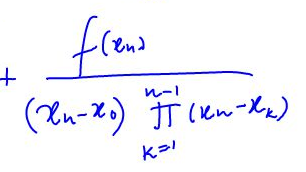 + \frac{f(x_n)}{(x_n - x_0) \prod_{k=1}^{n-1} (x_n - x_k)}